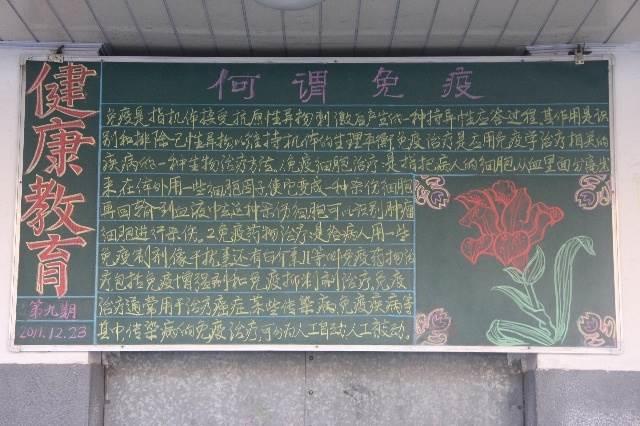 健康教育
第九期
2011.12.23
何谓免疫
免疫是指机体接受抗原性异物刺激后产生的一种特异性应答过程,其作用是识
别和排除己性异物,以维持机体的生理平衡免疫治疗是运用免疫学治疗相关的
疾病的一种生物治疗方法,1免疫细胞治疗是指把病人的细胞从血里面分离出
来在体外用一些细胞因子使它变成一种杀伤细胞
再回输到血液中去这种杀伤细胞可以识别肿瘤
细胞进行杀伤。2免疫药物治疗是给病人用一些
免疫制剂像干扰素还有白介素Ⅱ等叫免疫药物治
疗包括免疫增强剂和免疫抑制剂治疗,免疫
治疗通常用于治疗癌症某些传染病,免疫疾病等
其中传染病的免疫治疗,可分为人工自动,人工被动。